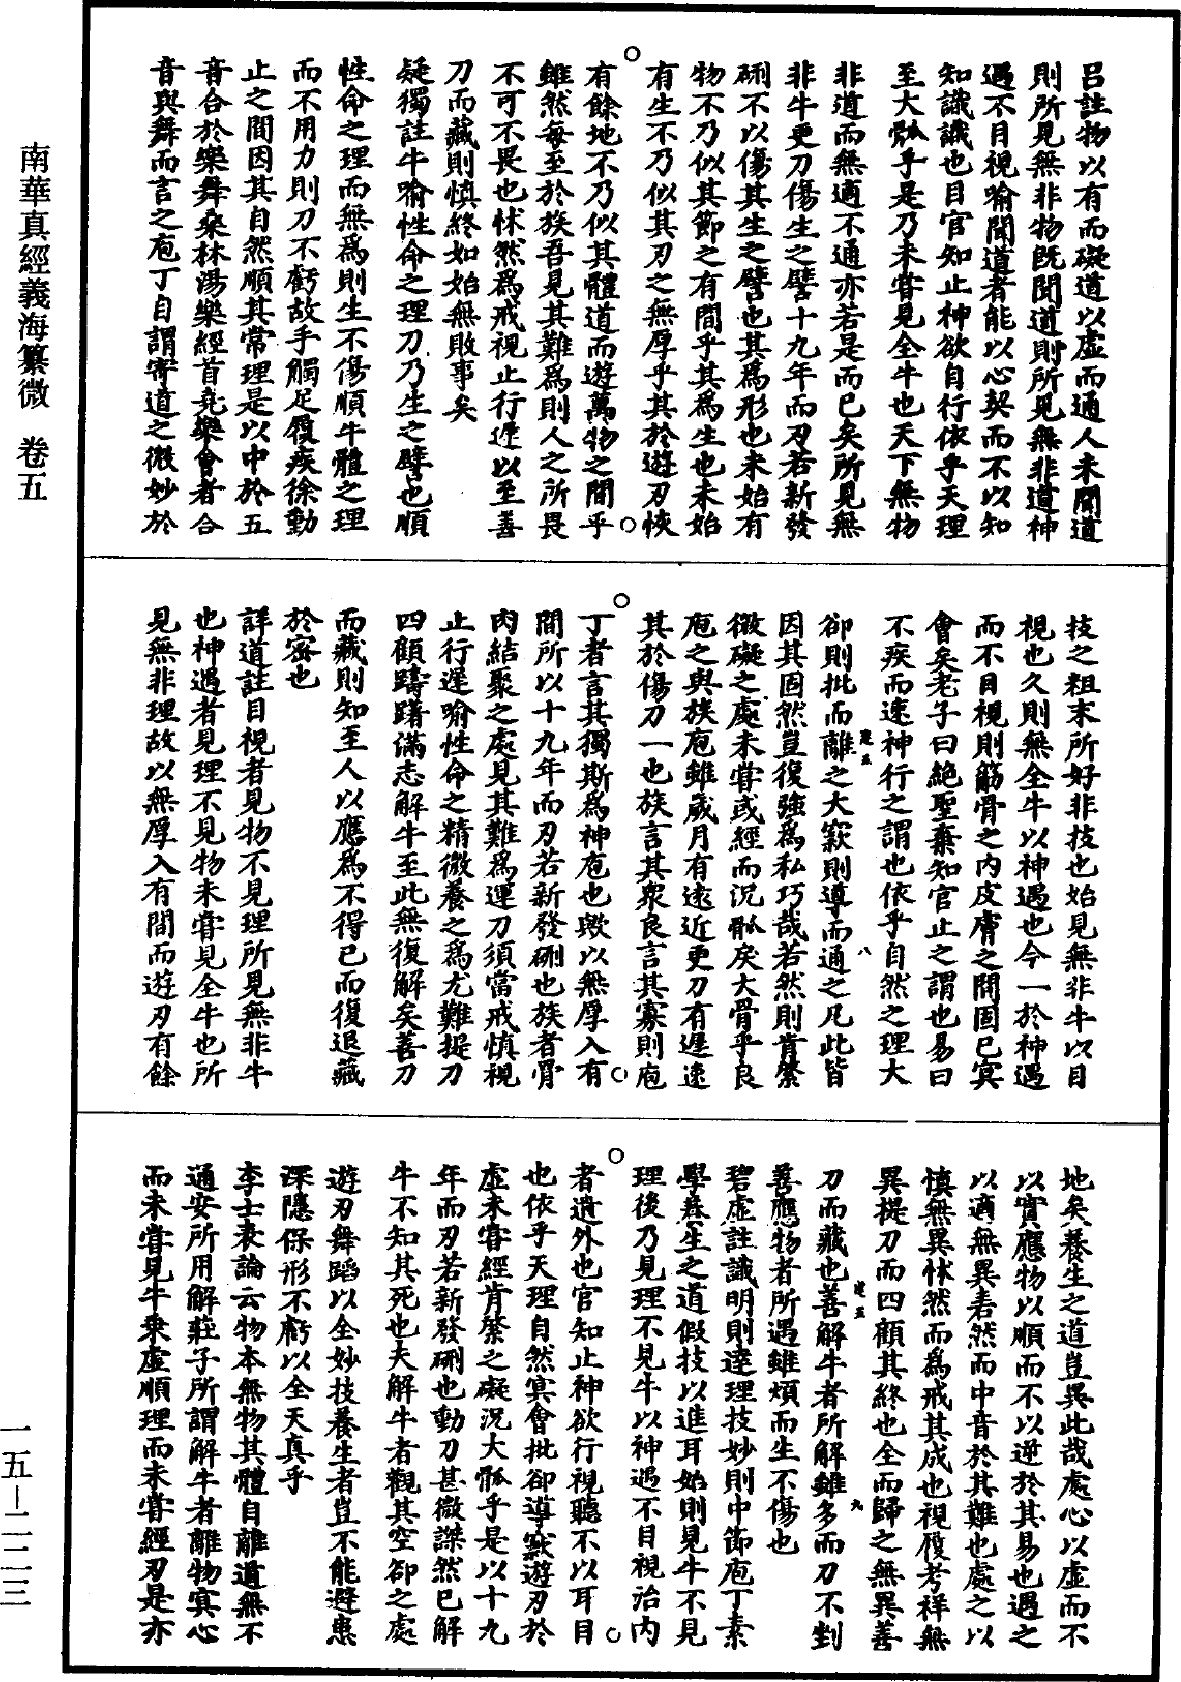 呂註物以有而礙道以虛而通人未聞道
則所見無非物既聞道則所見無非道神
遇不目視喻聞道者能以心契而不以知
知識識也目官知止神欲自行依乎天理
至大軱乎是乃未甞見全牛也天下無物
非道而無適不通亦若是而已矣所見無
非牛更刀傷生之譬十九年而刃若新發
硎不以傷其生之譬也其為形也未始有
物不乃似其節之有間乎其為生也未始
有生不乃似其刃之無厚乎其於遊刃恢
有餘地不乃似其體道而遊萬物之間乎
雖然每至於族吾見其難為則人之所畏
不可不畏也怵然為戒視止行遲以至善
刀而藏則慎終如始無敗事矣
疑獨註牛喻性命之理刀乃生之譬也順
性命之理而無為則生不傷順牛體之理
而不用力則刀不虧故手觸足履疾徐動
止之間因其自然順其常理是以中於五
音合於樂舞桑林湯樂經首堯樂會者合
音與舞而言之庖丁自謂寄道之微妙於
技之粗末所好非技也始見無非牛以目
視也久則無全牛以神遇也今一於神遇
而不目視則筋骨之內皮膚之間固已冥
會矣老子曰絕聖棄知官止之謂也易曰
不疾而速神行之謂也依乎自然之理大
卻則批而離之大窾則導而通之凡此皆
因其固然豈復強為私巧哉若然則肯綮
微礙之處未甞或經而況軱戾大骨乎良
庖之與族庖雖歲月有遠近更刀有遲速
其於傷刀一也族言其衆良言其寡則庖
丁者言其獨斯為神庖也歟以無厚入有
間所以十九年而刃若新發硎也族者骨
肉結聚之處見其難為運刀須當戒慎視
止行遲喻性命之精微養之為尤難提刀
四顧躊躇滿志解牛至此無復解矣善刀
而藏則知至人以應為不得已而復退藏
於密也
詳道註目視者見物不見理所見無非牛
也神遇者見理不見物未甞見全牛也所
見無非理故以無厚入有間而遊刃有餘
地矣養生之道豈異此哉處心以虛而不
以實應物以順而不以逆於其易也遇之
以適無異砉然而中音於其難也處之以
慎無異怵然而為戒其成也視履考祥無
異提刀而四顧其終也全而歸之無異善
刀而藏也善解牛者所解雖多而刀不剉
善應物者所遇雖煩而生不傷也
碧虛註識明則達理技妙則中節庖丁素
學養生之道假技以進耳始則見牛不見
理後乃見理不見牛以神遇不目視治內
者遺外也官知止神欲行視聽不以耳目
也依乎天理自然冥會批卻導窾遊刃於
虛未甞經肯綮之礙況大軱乎是以十九
年而刃若新發硎也動刀甚微謋然已解
牛不知其死也夫解牛者觀其空卻之處
遊刃舞蹈以全妙技養生者豈不能避患
深隱保形不虧以全天真乎
李士表論云物本無物其體自離道無不
通安所用解莊子所謂解牛者離物冥心
而未甞見牛乗虛順理而未甞經刃是亦
建五
八
建五
九
南華真經義海纂微 卷五
一五—二二三